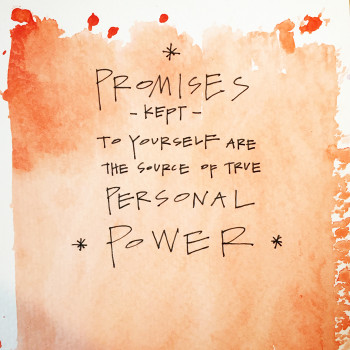 *
PROMISES
- KEPT -
TO YOURSELF ARE
THE SOURCE OF TRUE
PERSONAL
* POWER *